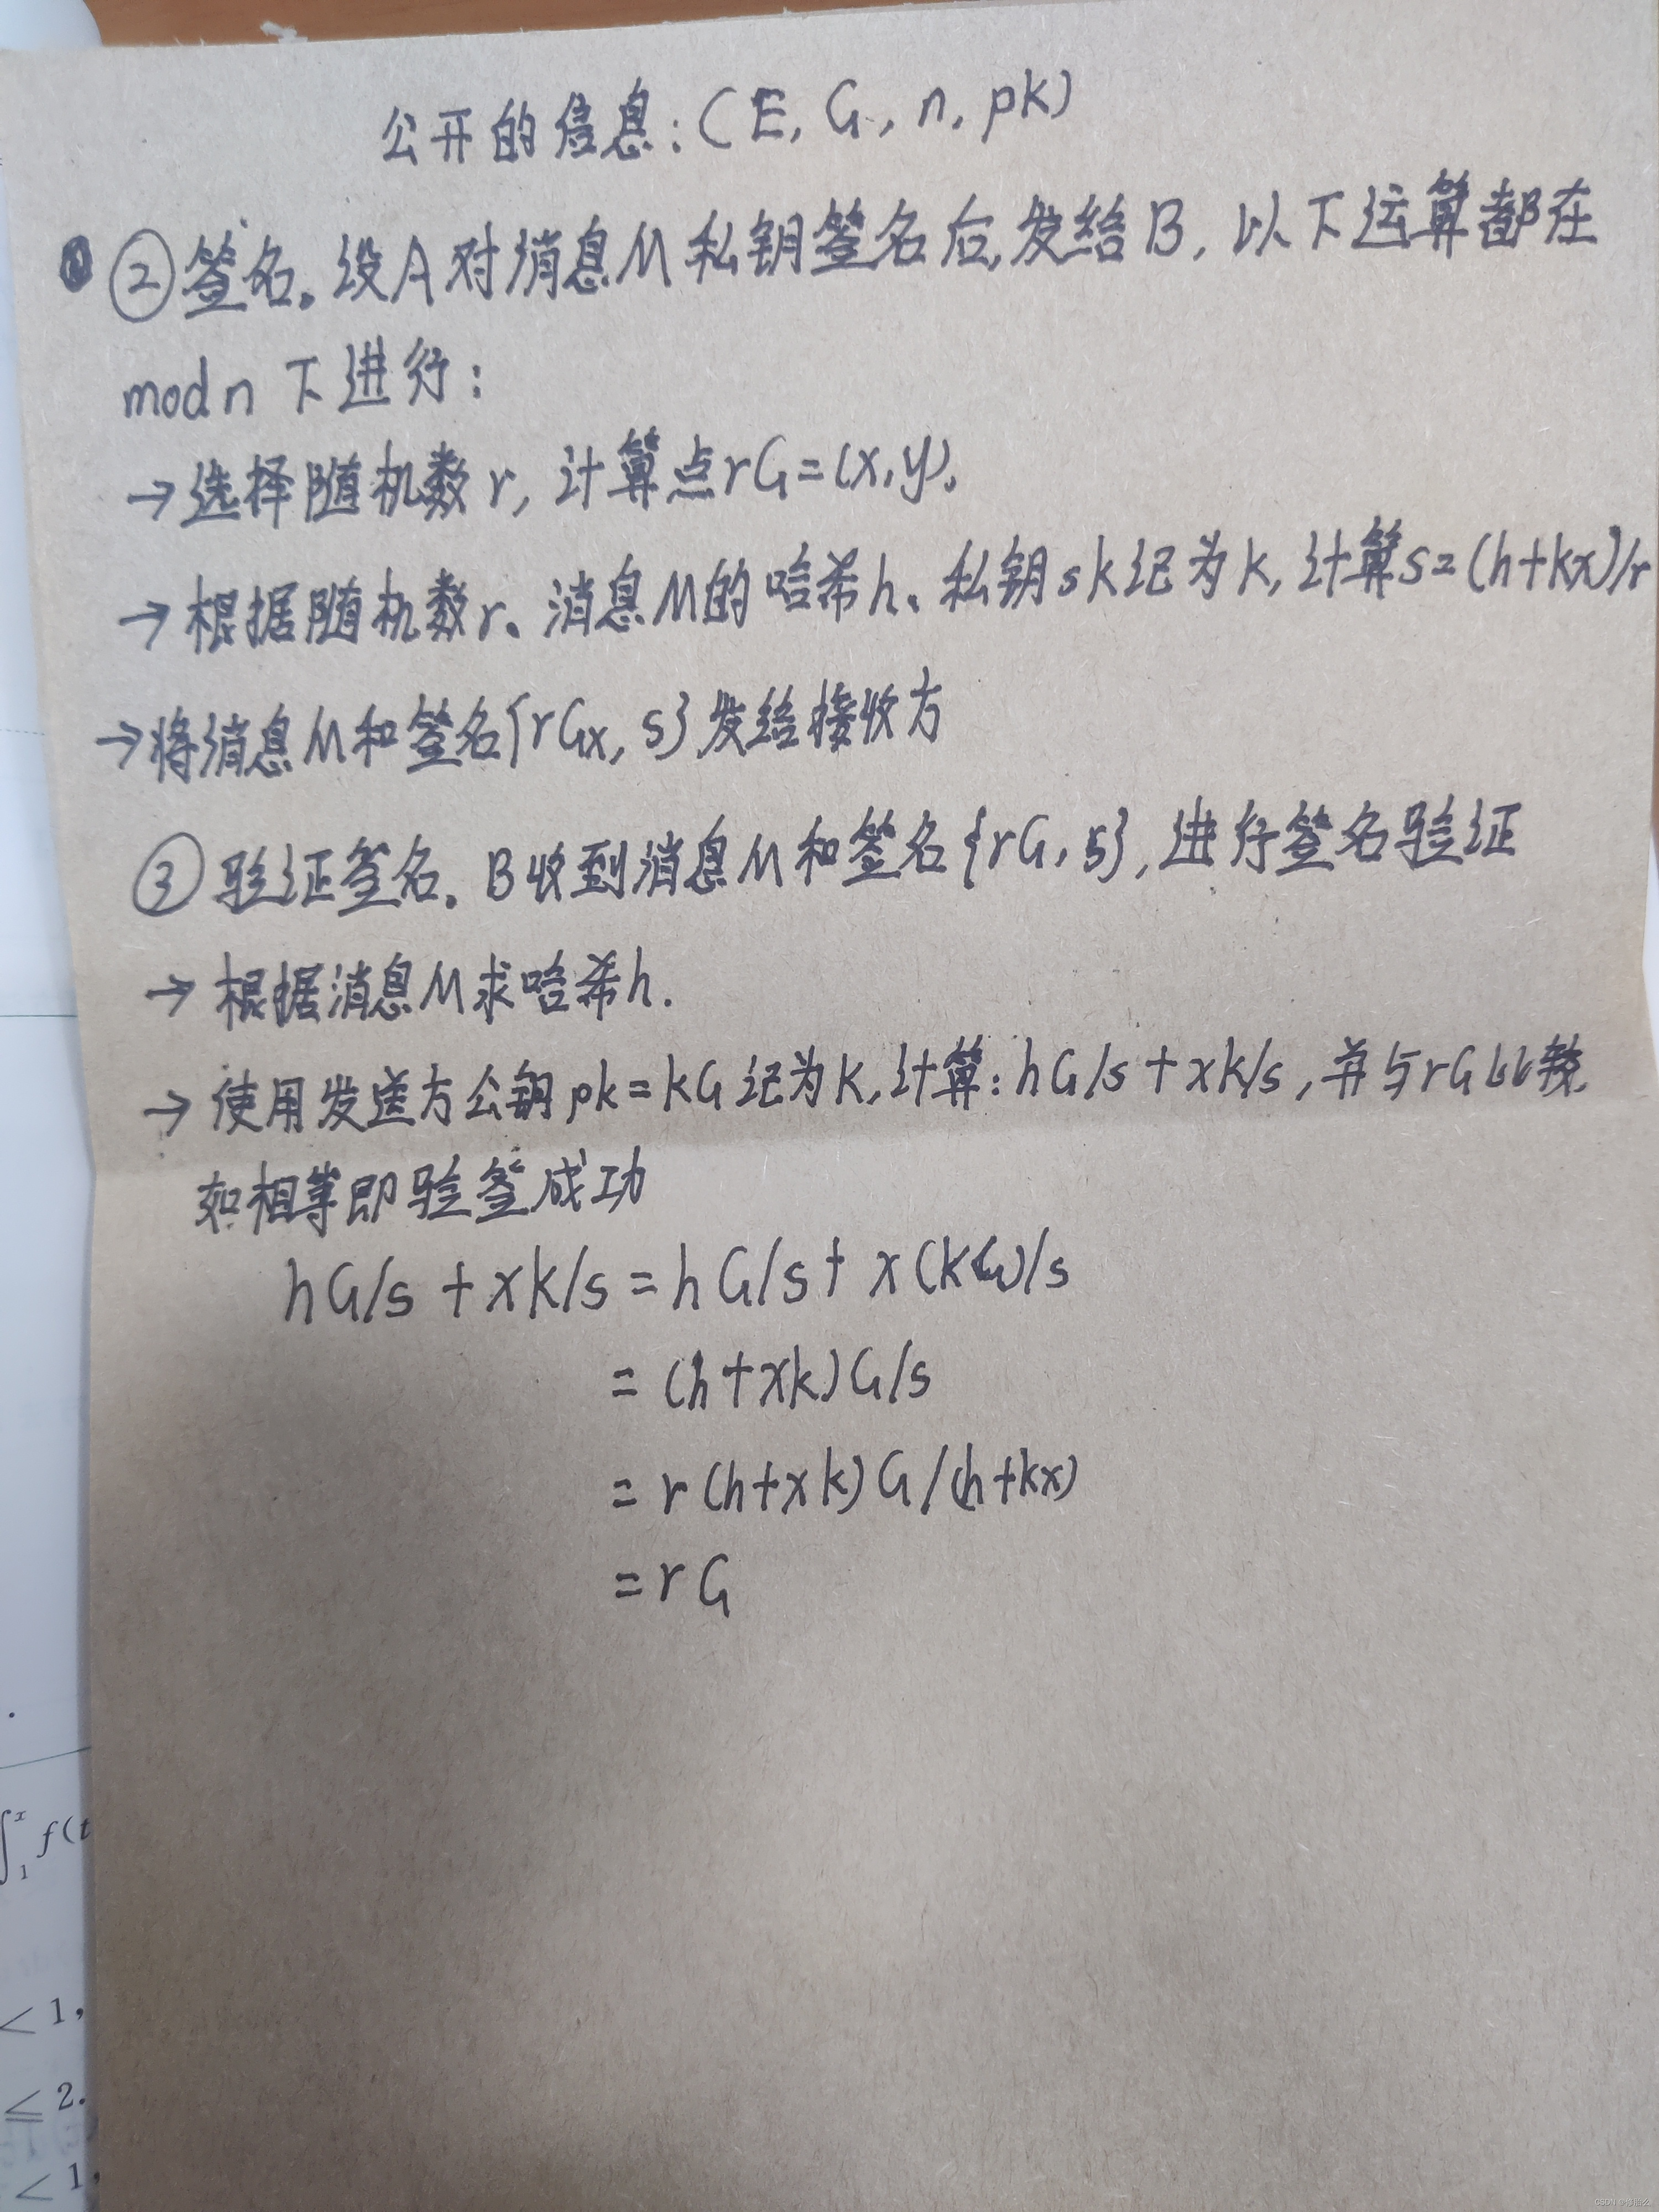 公开的信息:(E, G, n, pk)
②签名。设A对消息M私钥签名后,发给B,以下运算都在
mod n 下进行:
→选择随机数r,计算点rG=(x,y)。
→根据随机数r、消息M的哈希h、私钥sk记为k,计算s=(h+kx)/r
→将消息M和签名{rGx, s}发给接收方
③验证签名。B收到消息M和签名{rG, s},进行签名验证
→根据消息M求哈希h.
→使用发送方公钥pk=kG记为K,计算:hG/s+xK/s,并与rG比较,
如相等即验签成功
hG/s + xK/s = hG/s + x(kG)/s
= (h+xk)G/s
= r(h+xk)G/(h+kx)
= rG
∫₁ˣ f(t
< 1,
≤ 2.
< 1,